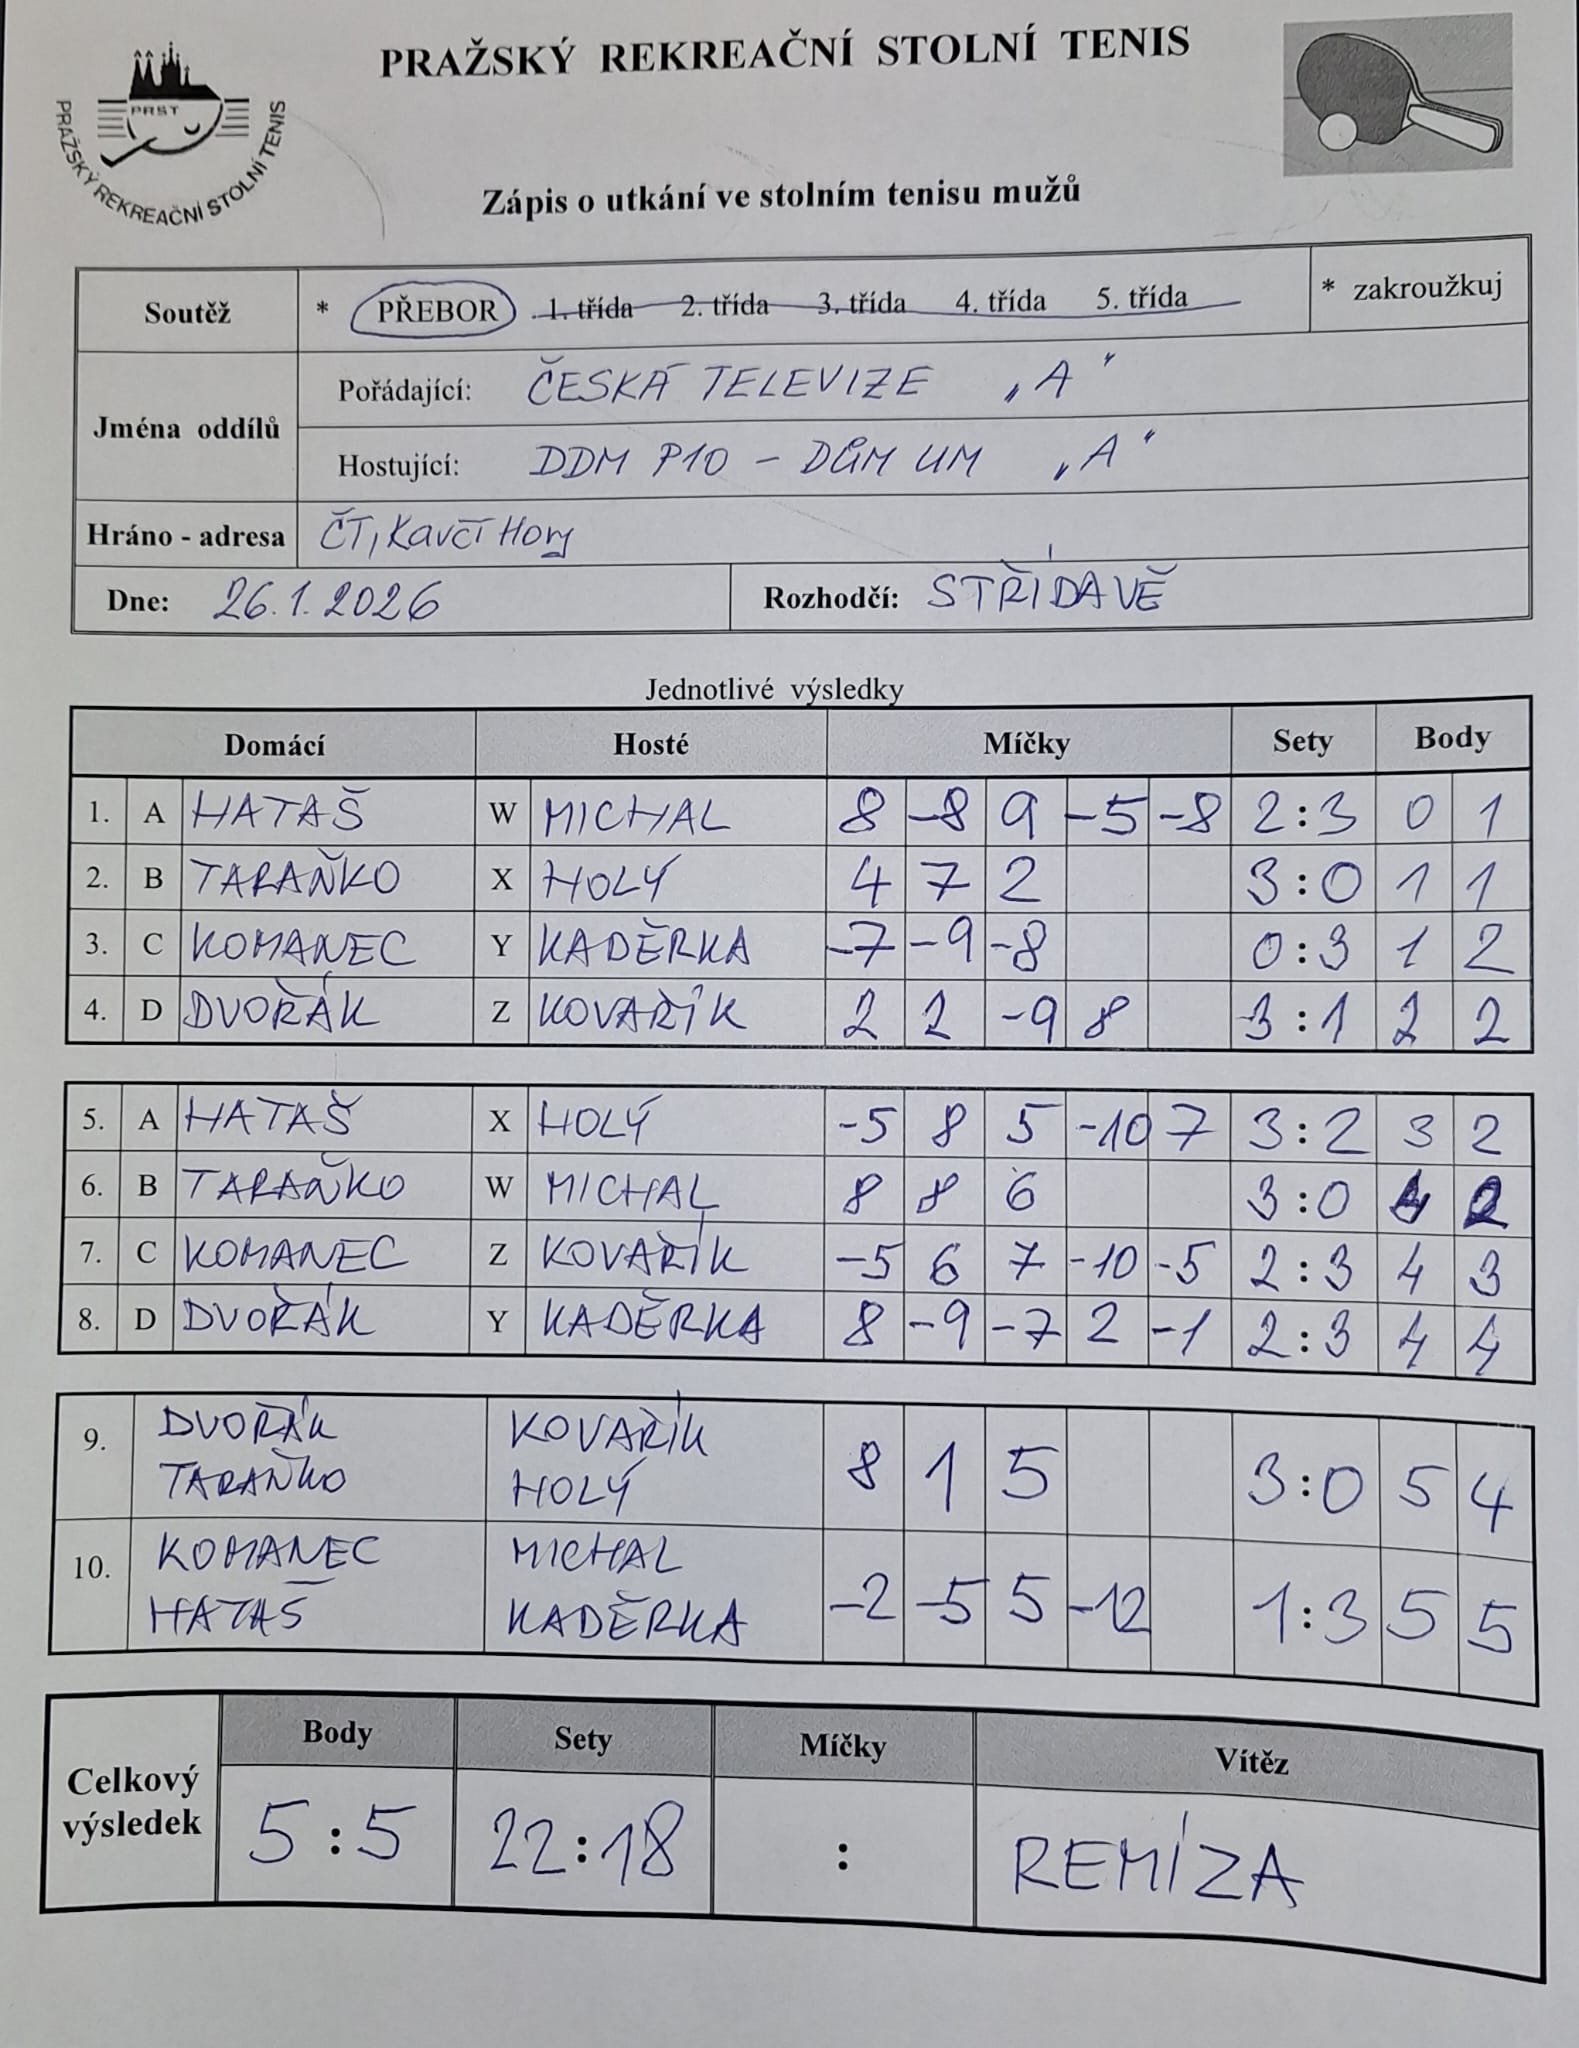 PRAŽSKÝ REKREAČNÍ STOLNÍ TENIS
PRST
PRAŽSKÝ REKREAČNÍ STOLNÍ TENIS
Zápis o utkání ve stolním tenisu mužů
Soutěž * PŘEBOR 1. třída 2. třída 3. třída 4. třída 5. třída * zakroužkuj
Jména oddílů
Pořádající: ČESKÁ TELEVIZE „A"
Hostující: DDM P10 - DŮM UM „A"
Hráno - adresa ČT, Kavčí Hory
Dne: 26.1.2026 Rozhodčí: STŘÍDAVĚ
Jednotlivé výsledky
Domácí Hosté Míčky Sety Body
1. A HATAŠ W MICHAL 8 -8 9 -5 -8 2:3 0 1
2. B TARAŇKO X HOLÝ 4 7 2 3:0 1 1
3. C KOMANEC Y KADĚRKA -7 -9 -8 0:3 1 2
4. D DVOŘÁK Z KOVAŘÍK 2 2 -9 8 3:1 2 2
5. A HATAŠ X HOLÝ -5 8 5 -10 7 3:2 3 2
6. B TARAŇKO W MICHAL 8 8 6 3:0 4 2
7. C KOMANEC Z KOVAŘÍK -5 6 7 -10 -5 2:3 4 3
8. D DVOŘÁK Y KADĚRKA 8 -9 -7 2 -1 2:3 4 4
9. DVOŘÁK KOVAŘÍK 8 1 5 3:0 5 4
TARAŇKO HOLÝ
10. KOMANEC MICHAL -2 -5 5 -12 1:3 5 5
HATAŠ KADĚRKA
Celkový výsledek
Body Sety Míčky Vítěz
5:5 22:18 : REMÍZA